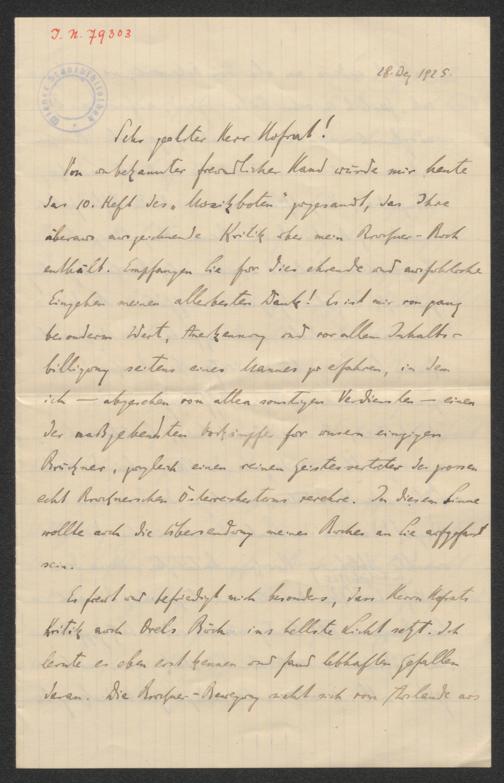 I. N. 79303
Wiener Stadtbibliothek
28. Dez 1925.
Sehr geehrter Herr Hofrat!
Von unbekannter freundlicher Hand wurde mir heute
das 10. Heft des „Musikboten" zugesandt, das Ihre
überaus auszeichnende Kritik über mein Bruckner-Buch
enthält. Empfangen Sie für dies ehrende und ausführliche
Eingehen meinen allerbesten Dank! Es ist mir von ganz
besonderem Wert, Anerkennung und vor allem Inhalts-
billigung seitens eines Mannes zu erfahren, in dem
ich — abgesehen von allen sonstigen Verdiensten — einen
der maßgebendsten Vorkämpfer für unsern einzigen
Bruckner, zugleich einen reinen Geistesvertreter des grossen
echt Brucknerschen Österreichertums verehre. In diesem Sinne
wollte auch die Übersendung meines Buches an Sie aufgefasst
sein.
Es freut und befriedigt mich besonders, dass Herrn Hofrats
Kritik auch Orels Buch ins hellste Licht setzt. Ich
lernte es eben erst kennen und fand lebhaften Gefallen
daran. Die Bruckner-Bewegung sieht sich vom Auslande aus